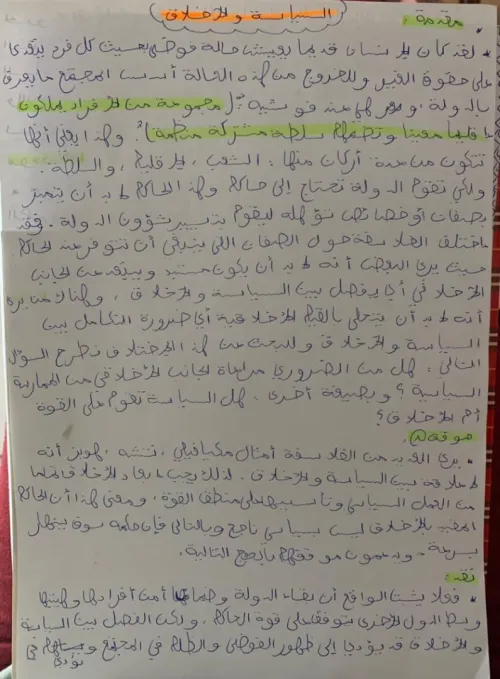 السياسة والأخلاق
مقدمة:
* لقد كان الإنسان قديما يعيش حالة فوضى بحيث كل فرد يتعدى
على حقوق الغير وللخروج من هذه الحالة أسس المجتمع ما يعرف
بالدولة، مجموعة من الأفراد يملكون
إقليما معينا وتضمها سلطة مشتركة منظمة)، وهذا يعني أنها
تتكون من عدة أركان منها: الشعب، الإقليم، والسلطة.
ولكي تقوم الدولة تحتاج إلى حاكم وهذا الحاكم لابد أن يتميز
بصفات أو خصائص تؤهله ليقوم بتسيير شؤون الدولة. فقد
اختلف الفلاسفة حول الصفات اللي ينبغي أن تتوفر عند الحاكم
حيث يرى البعض أنه لابد أن يكون مستبد ويبتعد عن الجانب
الأخلاقي أي يفصل بين السياسة والأخلاق، وهناك من يرى
أنه لابد أن يتحلى بالقيم الأخلاقية أي ضرورة التكامل بين
السياسة والأخلاق وللبحث عن هذا الإختلاف نطرح السؤال
التالي: هل من الضروري مراعاة الجانب الأخلاقي من الممارسة
السياسية؟ وبصيغة أخرى، هل السياسة تقوم على القوة
أم الأخلاق؟
موقف1:
* يرى العديد من الفلاسفة أمثال مكيافيلي، نتشه، هوبز أنه
لا علاقة بين السياسة والأخلاق. لذلك يجب إبعاد الأخلاق تماما
من العمل السياسي وتأسيسها على منطق القوة، ومعنى هذا أن الحاكم
المقيد بالأخلاق ليس سياسي ناجح وبالتالي فإن حكمه سوف ينهار
بسرعة. ويدعمون موقفهم بالحجج التالية.
نقد:
* فعلا يثبت الواقع أن بقاء الدولة وضمان أمن أفرادها وهيبتها
وسط الدول الأخرى يتوقف على قوة الحاكم، ولكن الفصل بين السياسة
والأخلاق قد يؤدي إلى ظهور الفوضى والظلم في المجتمع في
تؤدي